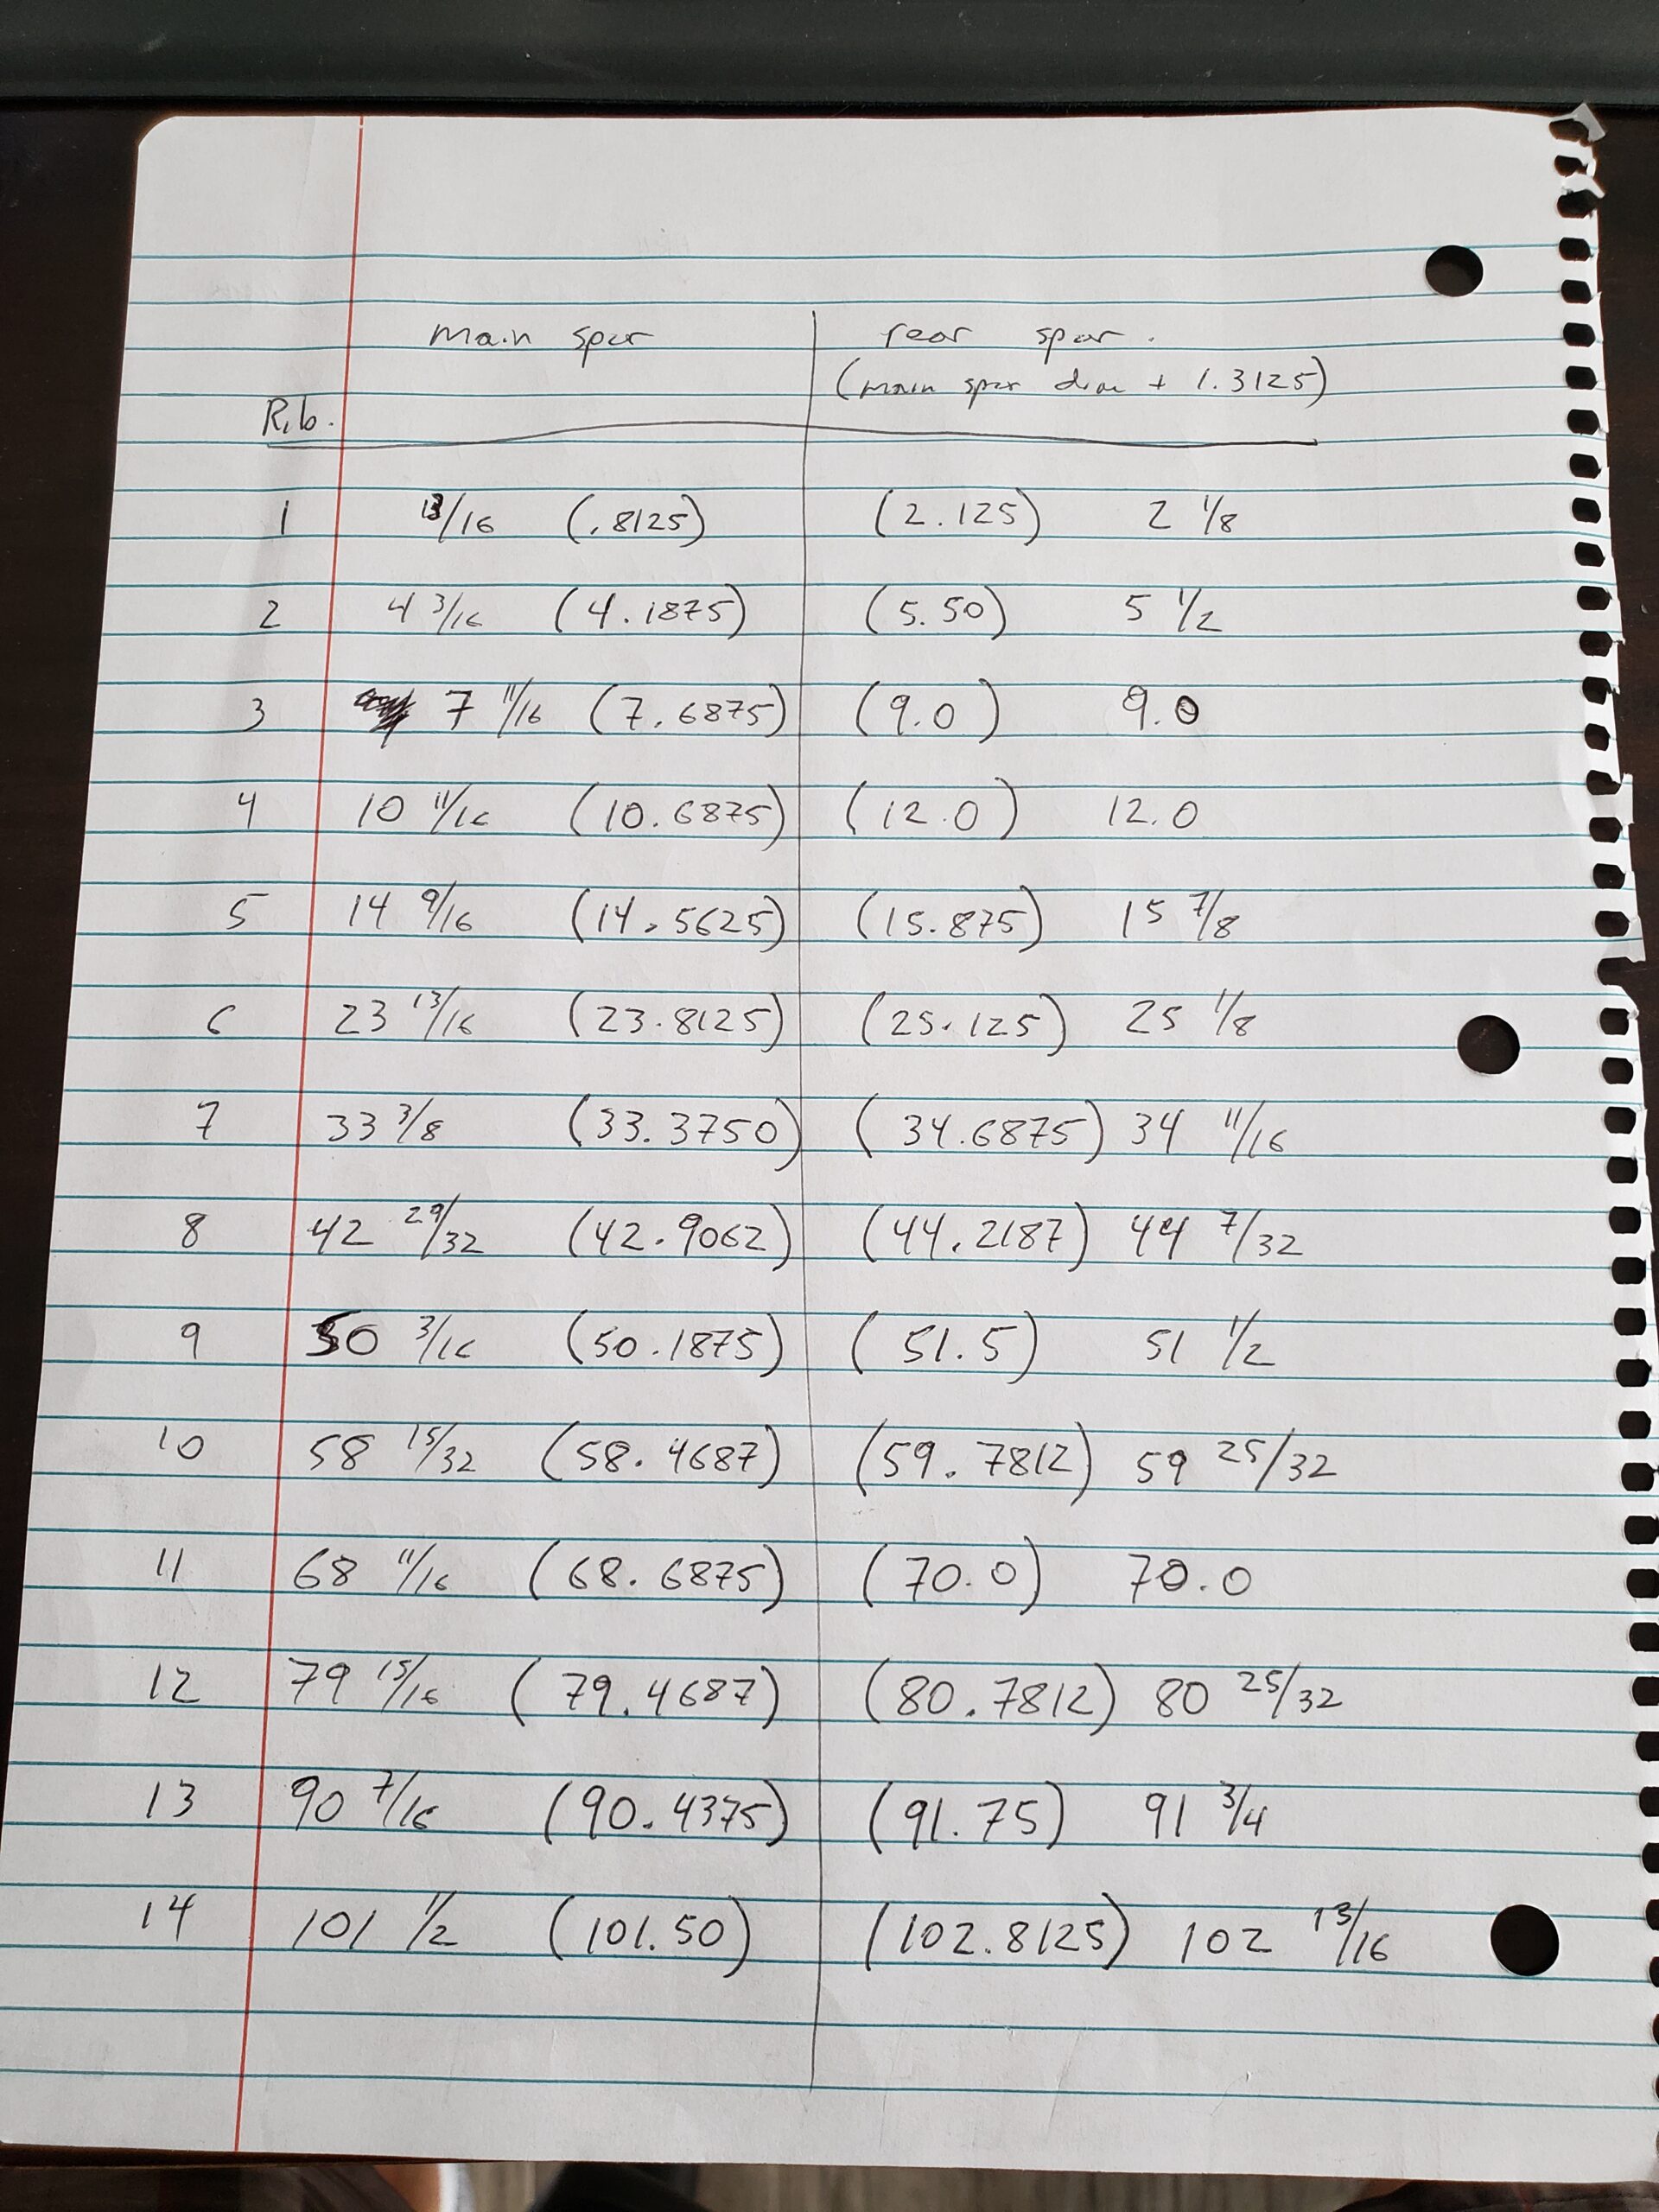 main spar rear spar.
(main spar dim + 1.3125)
Rib.
1 13/16 (.8125) (2.125) 2 1/8
2 4 3/16 (4.1875) (5.50) 5 1/2
3 7 11/16 (7.6875) (9.0) 9.0
4 10 11/16 (10.6875) (12.0) 12.0
5 14 9/16 (14.5625) (15.875) 15 7/8
6 23 13/16 (23.8125) (25.125) 25 1/8
7 33 3/8 (33.3750) (34.6875) 34 11/16
8 42 29/32 (42.9062) (44.2187) 44 7/32
9 50 3/16 (50.1875) (51.5) 51 1/2
10 58 15/32 (58.4687) (59.7812) 59 25/32
11 68 11/16 (68.6875) (70.0) 70.0
12 79 15/16 (79.4687) (80.7812) 80 25/32
13 90 7/16 (90.4375) (91.75) 91 3/4
14 101 1/2 (101.50) (102.8125) 102 13/16